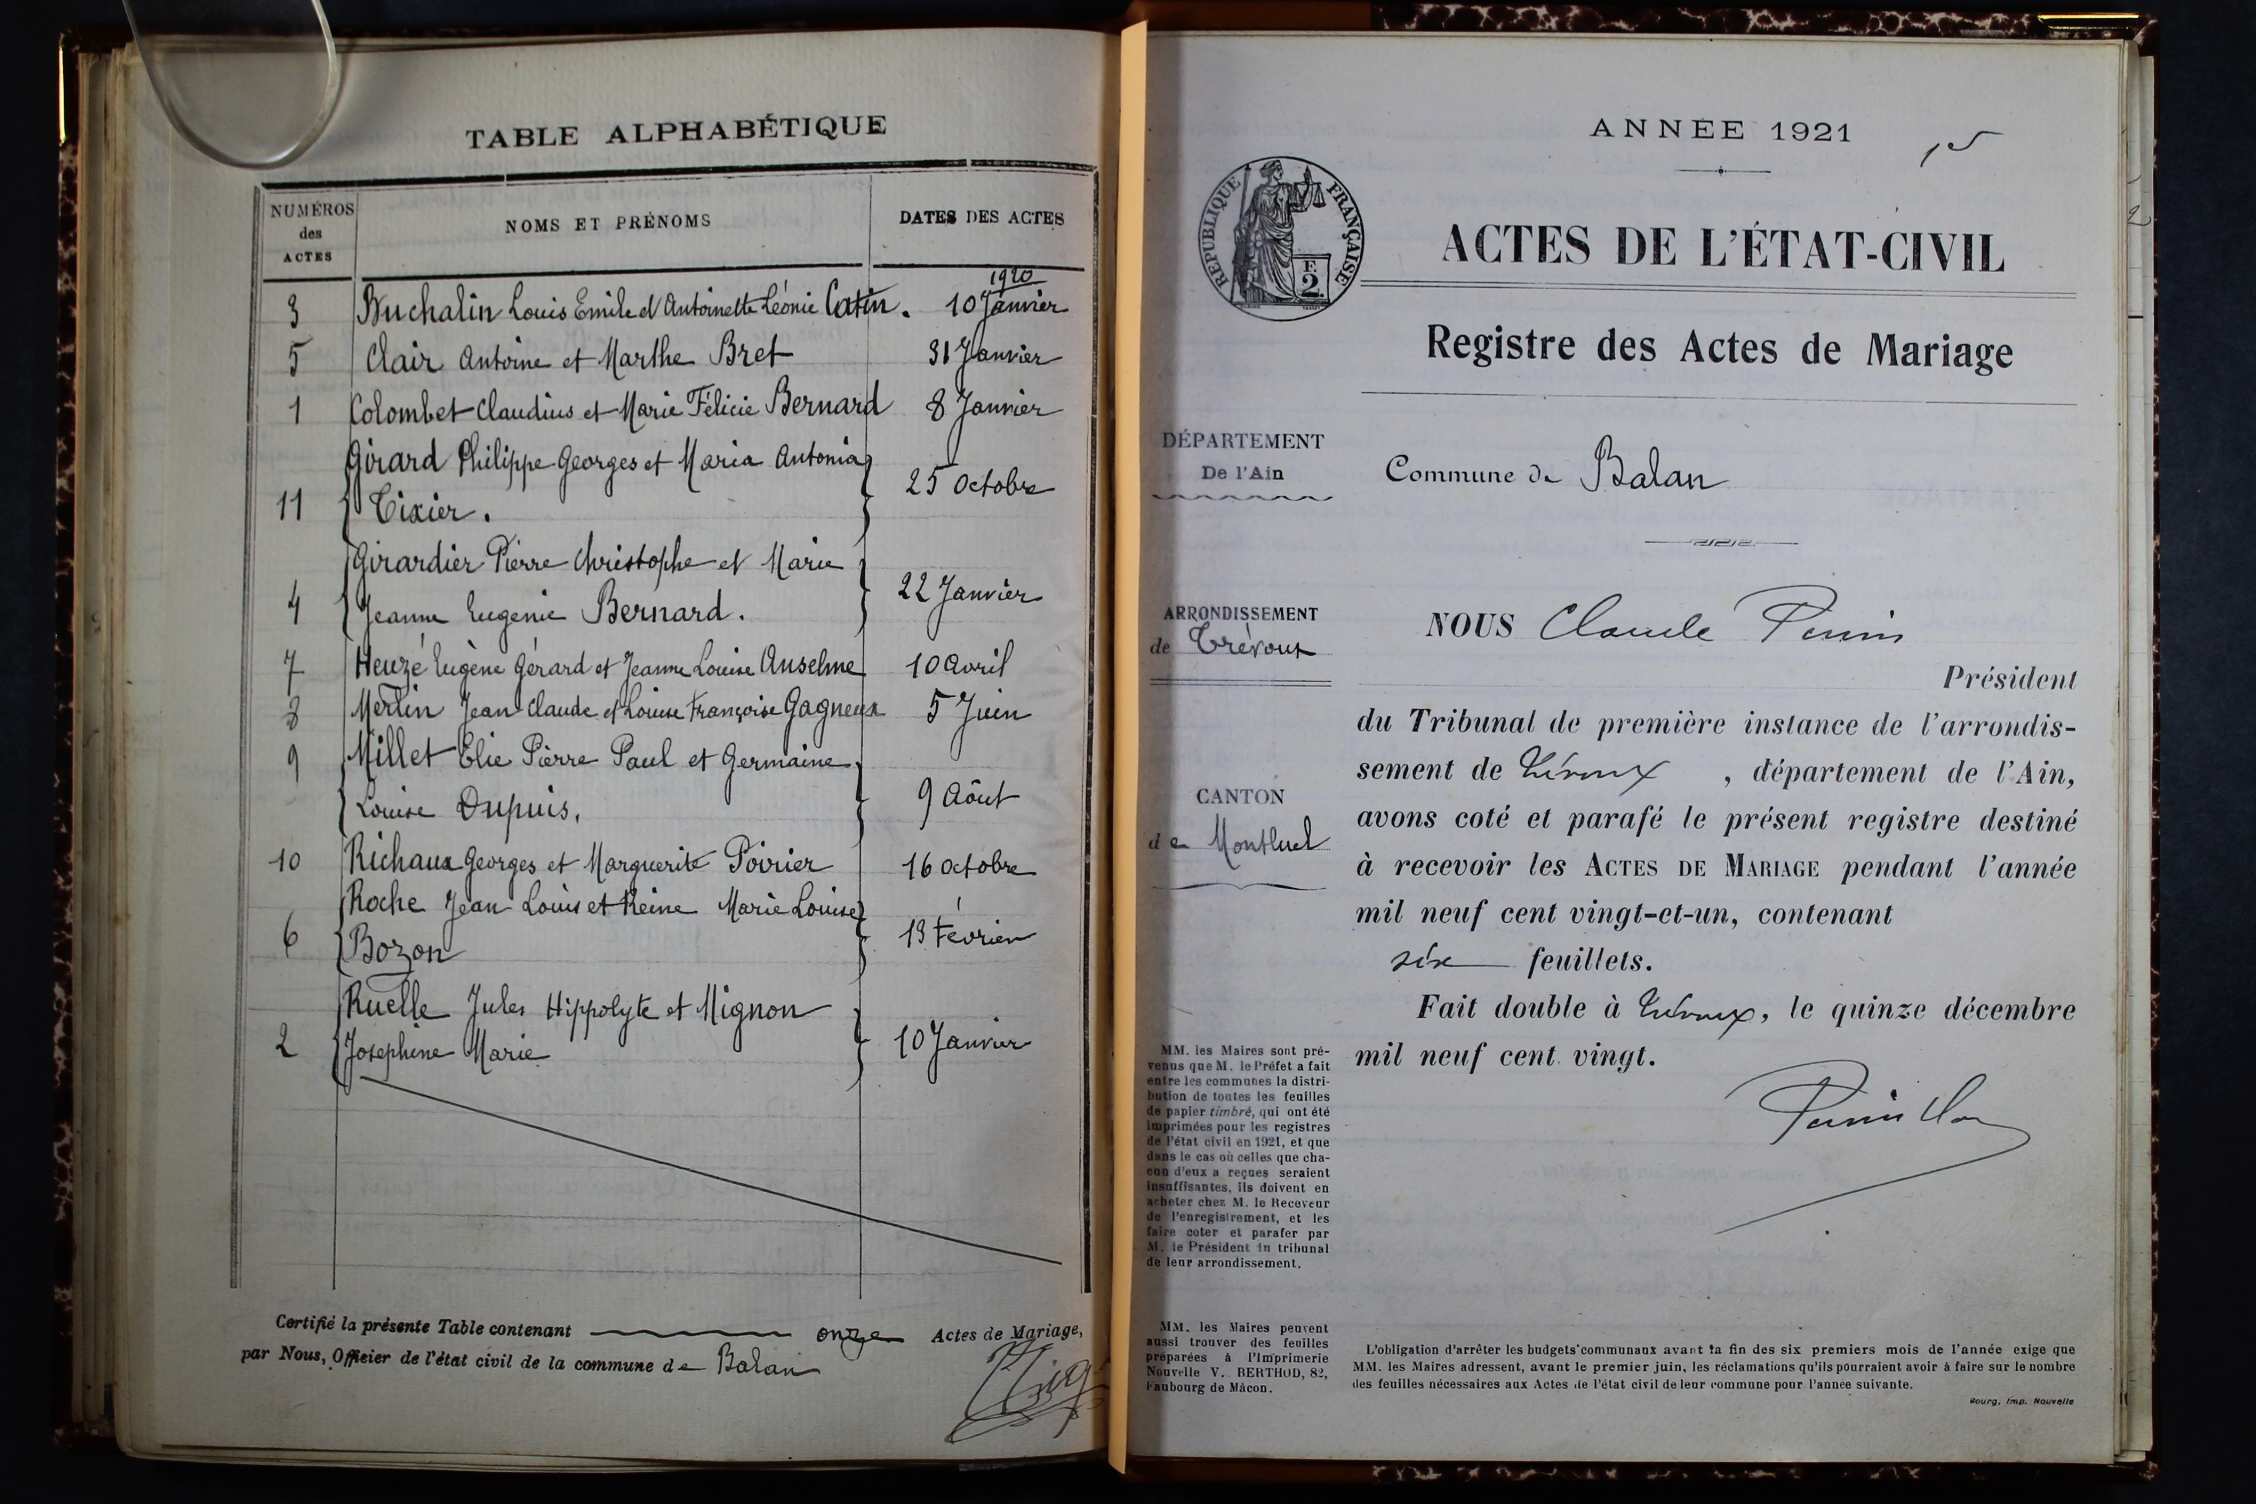 TABLE ALPHABÉTIQUE
NUMÉROS
des
ACTES
NOMS ET PRÉNOMS
DATES DES ACTES
1920
3 Buchalin Louis Emile et Antoinette Léonie Catin. 10 Janvier
5 Clair Antoine et Marthe Bret 31 Janvier
1 Colombet Claudius et Marie Félicie Bernard 8 Janvier
Girard Philippe Georges et Maria Antonia
11 Tixier. 25 Octobre
Girardier Pierre Christophe et Marie
4 Jeanne Eugenie Bernard. 22 Janvier
7 Heuzé Eugène Gérard et Jeanne Louise Anselme 10 Avril
8 Merlin Jean Claude et Louise Françoise Gagneux 5 Juin
9 Millet Elie Pierre Paul et Germaine
Louise Dupuis. 9 Août
10 Richaux Georges et Marguerite Poirier 16 octobre
Roche Jean Louis et Reine Marie Louise
6 Bozon 13 Février
Ruelle Jules Hippolyte et Mignon
2 Josephine Marie 10 Janvier
Certifié la présente Table contenant onze Actes de Mariage,
par Nous, Officier de l'état civil de la commune de Balan
ANNÉE 1921
RÉPUBLIQUE FRANÇAISE
F.
2
ACTES DE L'ÉTAT-CIVIL
Registre des Actes de Mariage
DÉPARTEMENT
De l'Ain
Commune de Balan
ARRONDISSEMENT
de Trévoux
CANTON
de Montluel
NOUS Claude Perrin
Président
du Tribunal de première instance de l'arrondis-
sement de Trévoux, département de l'Ain,
avons coté et parafé le présent registre destiné
à recevoir les ACTES DE MARIAGE pendant l'année
mil neuf cent vingt-et-un, contenant
six feuillets.
Fait double à Trévoux, le quinze décembre
mil neuf cent vingt.
MM. les Maires sont pré-
venus que M. le Préfet a fait
entre les communes la distri-
bution de toutes les feuilles
de papier timbré, qui ont été
imprimées pour les registres
de l'état civil en 1921, et que
dans le cas où celles que cha-
cun d'eux a reçues seraient
insuffisantes, ils doivent en
acheter chez M. le Receveur
de l'enregistrement, et les
faire coter et parafer par
M. le Président du tribunal
de leur arrondissement.
MM. les Maires peuvent
aussi trouver des feuilles
préparées à l'Imprimerie
Nouvelle V. BERTHOD, 82,
Faubourg de Mâcon.
L'obligation d'arrêter les budgets communaux avant la fin des six premiers mois de l'année exige que
MM. les Maires adressent, avant le premier juin, les réclamations qu'ils pourraient avoir à faire sur le nombre
des feuilles nécessaires aux Actes de l'état civil de leur commune pour l'année suivante.
Bourg, Imp. Nouvelle